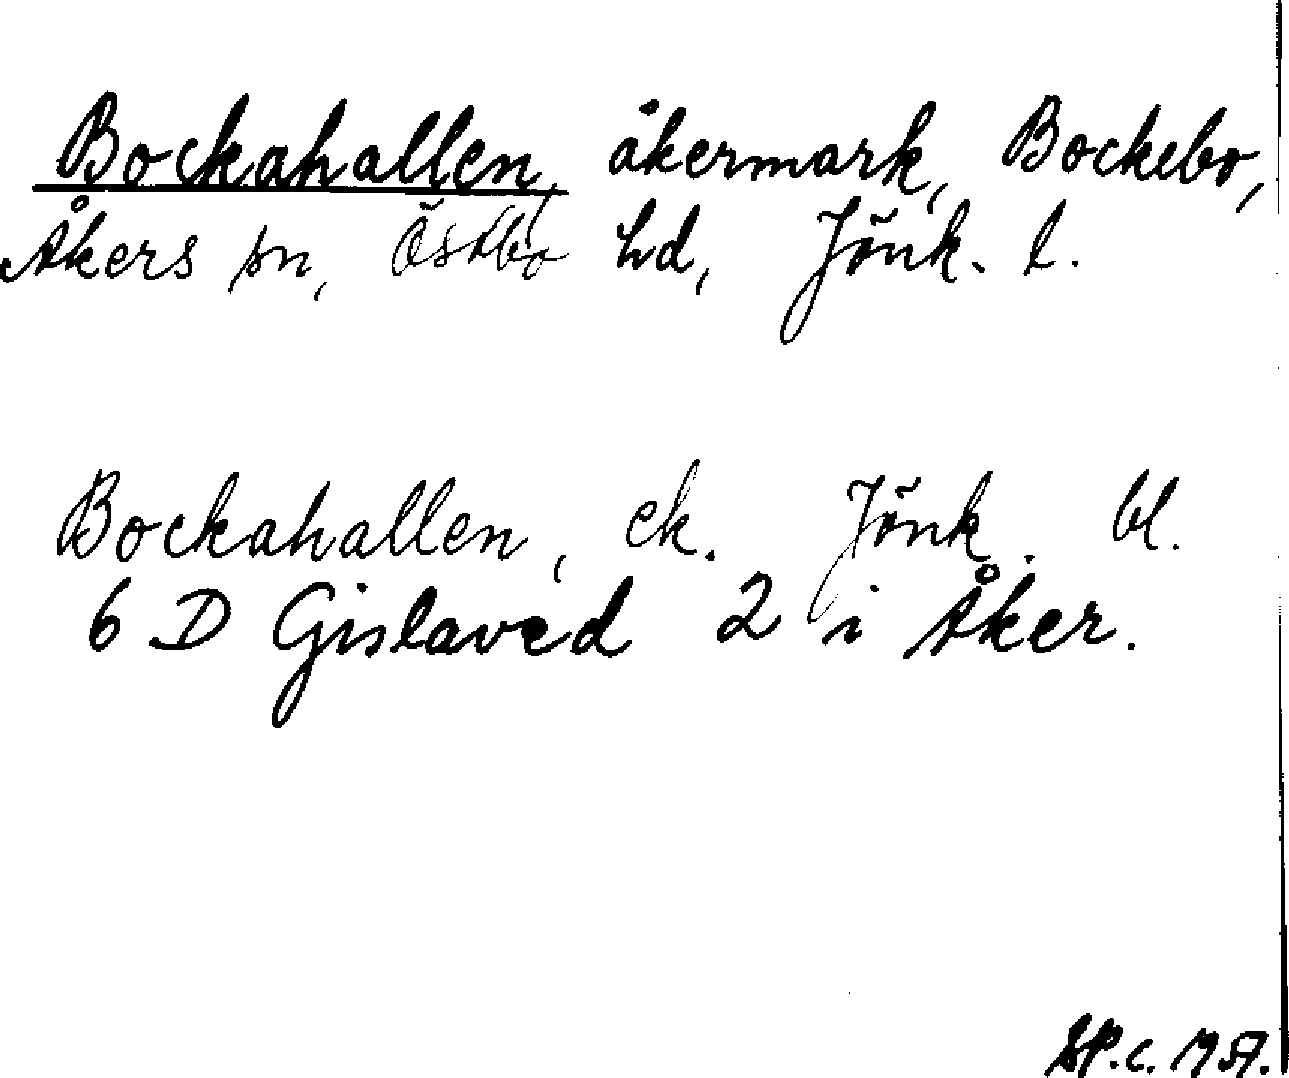 Bockahallen, åkermark, Bockebo,
Åkers sn, Östbo hd, Jönk. l.
Bockahallen, ek. Jönk. bl.
6 D Gislaved 2 i Åker.